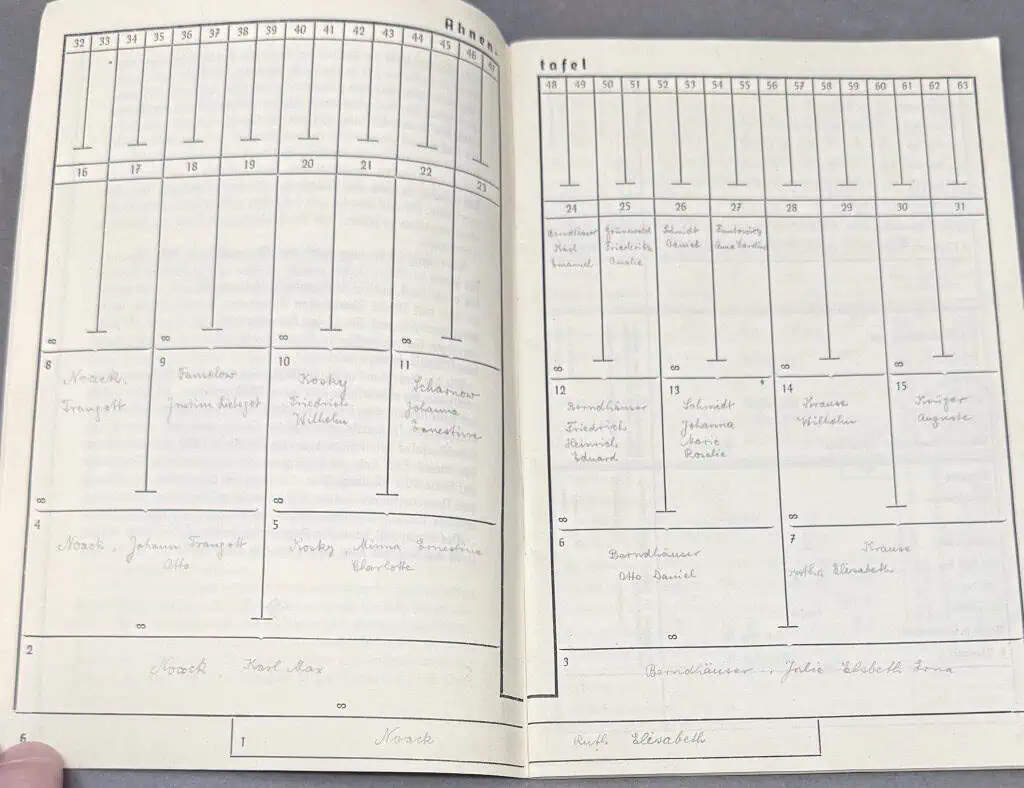 Ahnen-
32 33 34 35 36 37 38 39 40 41 42 43 44 45 46 47
16 17 18 19 20 21 22 23
∞ ∞ ∞ ∞
8 9 10 11
Noack. Famelow Kosky Scharnow
Traugott Friedrich Johanna
Wilhelm Ernestine
∞ ∞
4 5
Noack, Johann Traugott Kosky, Minna Ernestine
Otto Charlotte
∞
2
Noack Karl Max
∞
6
1 Noack
tafel
48 49 50 51 52 53 54 55 56 57 58 59 60 61 62 63
24 25 26 27 28 29 30 31
Berndhäuser Grünewald Schmidt
Karl Friederike Daniel
Emanuel Amalie
∞ ∞ ∞ ∞
12 13 14 15
Berndhäuser Schmidt Krause Krüger
Friedrich Johanna Wilhelm Auguste
Heinrich Marie
Eduard Rosalie
∞ ∞
6 7
Berndhäuser Krause
Otto Daniel Elisabeth
∞
3
Berndhäuser, Julie Elsbeth Erna
Ruth Elisabeth